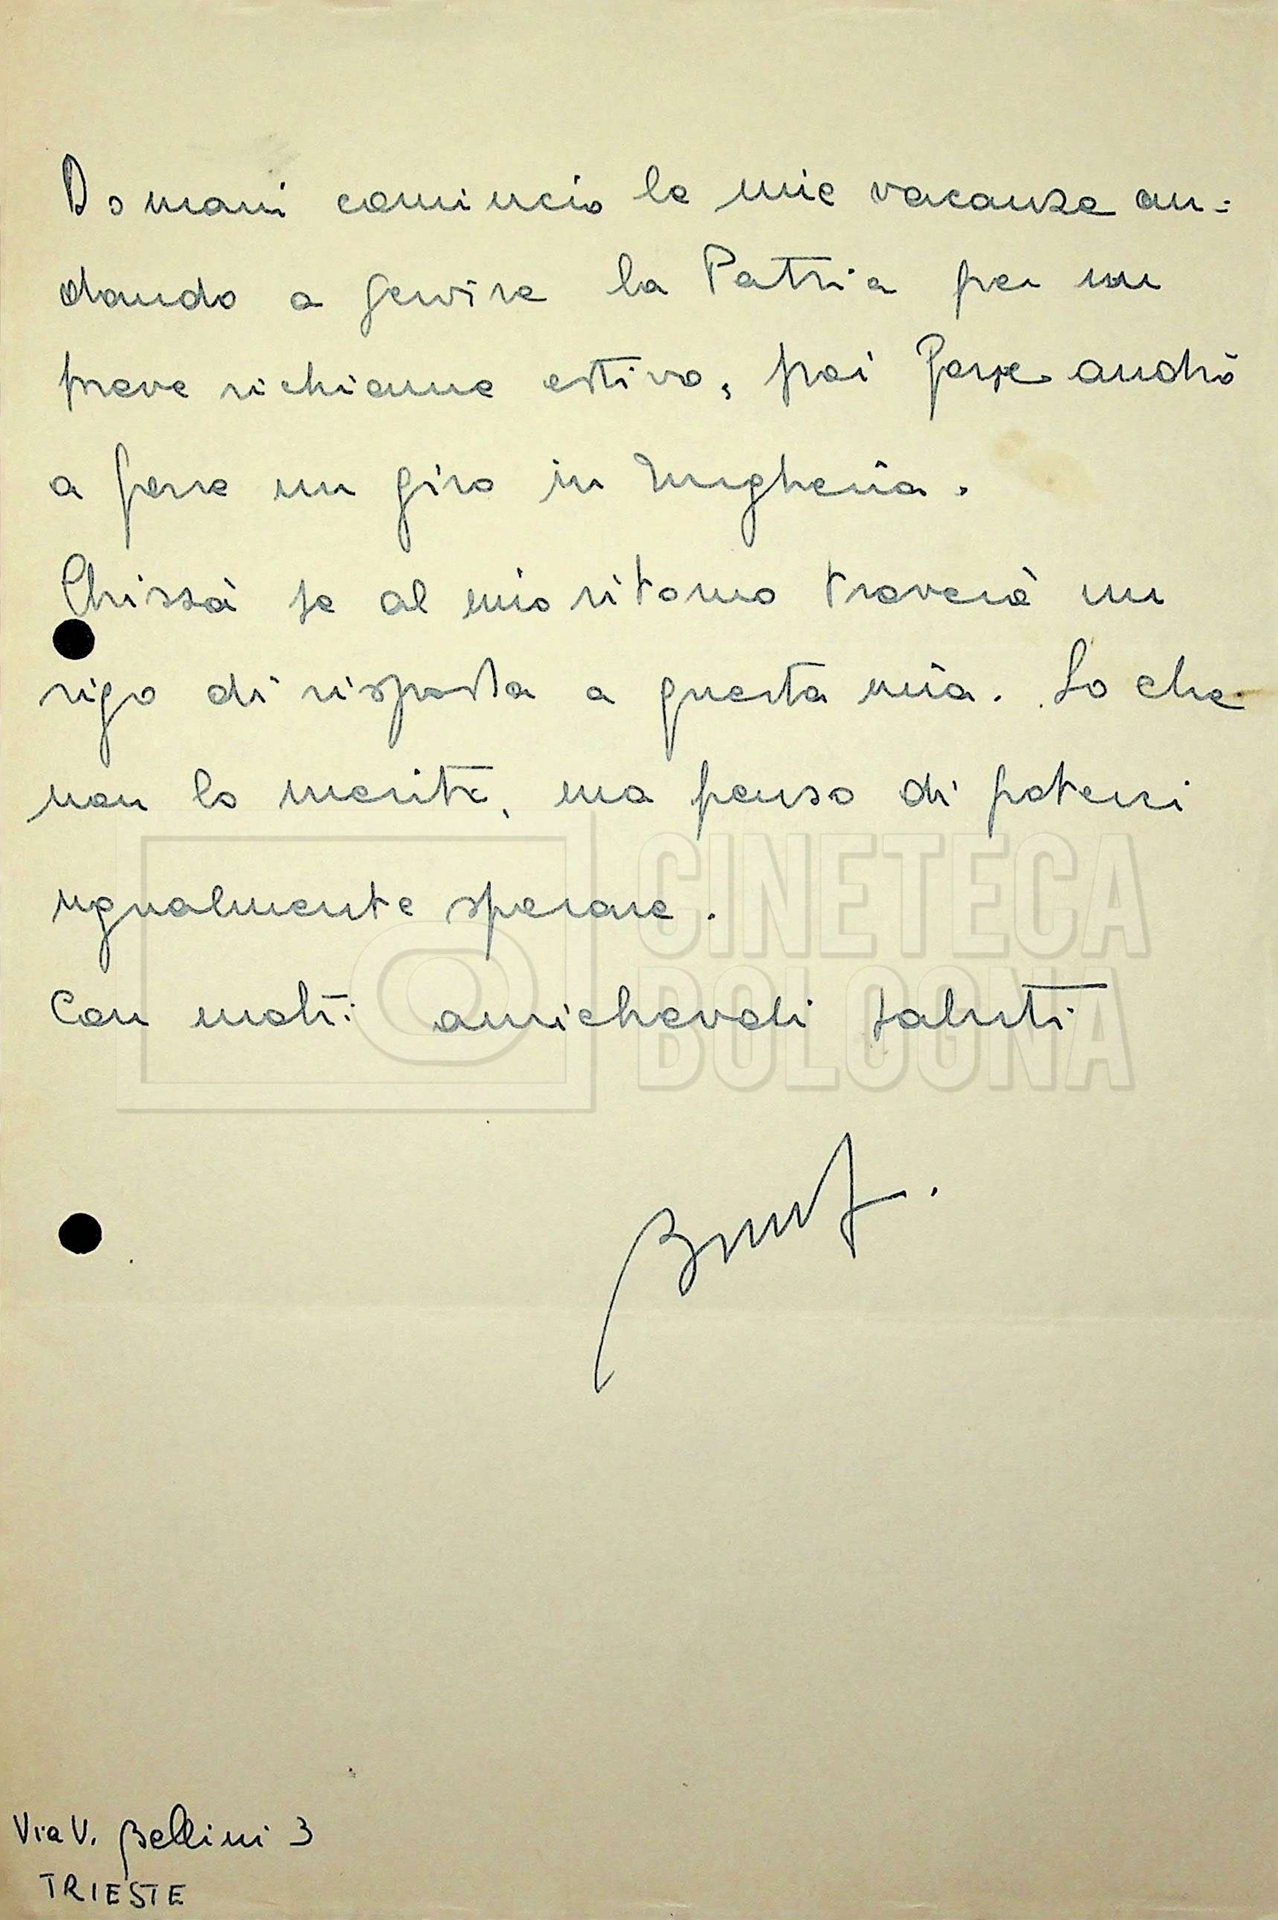 Domani comincio le mie vacanze an=
dando a servire la Patria per un
breve richiamo estivo, poi forse andrò
a fare un giro in Ungheria.
Chissà se al mio ritorno troverò un
rigo di risposta a questa mia. So che
non lo merito, ma penso di poterci
ugualmente sperare.
Con molti amichevoli saluti
CINETECA
BOLOGNA
Via V. Bellini 3
TRIESTE